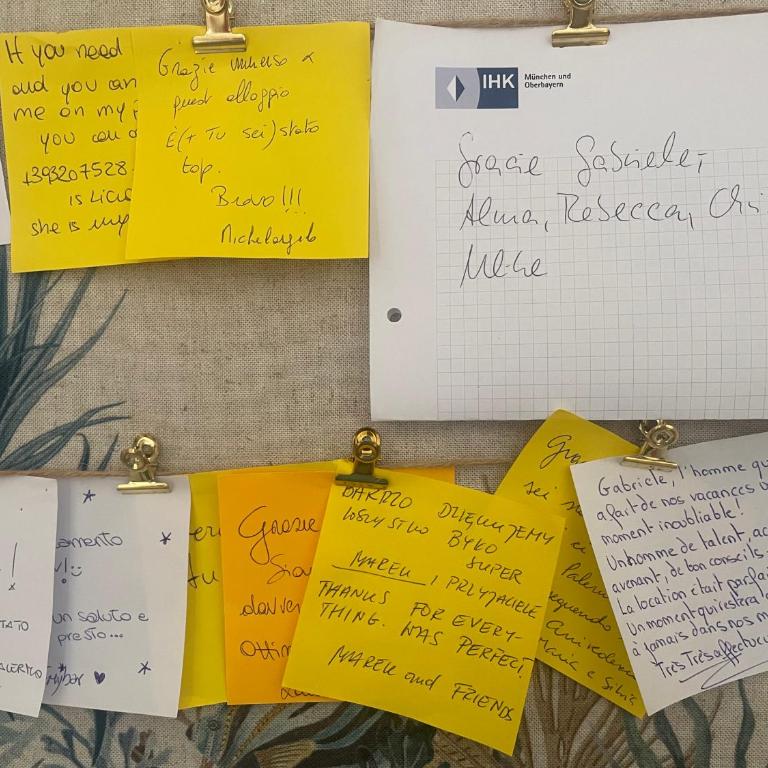 If you need
and you can
me on my
you can
+393207528
is
she is my
Grazie
quest alloggio
È (+ Tu sei) stato
top.
Bravo!!!
Michelangelo
IHK
München und
Oberbayern
Grazie Gabriele,
Alma, Rebecca,
Mike
TATO
ALERMO
amento
un saluto e
presto...
Grazie
davver
Ottim
BARDZO DZIĘKUJEMY
WSZYSTKO BYŁO
SUPER
MAREK I PRZYJACIELE
THANKS FOR EVERY-
THING. WAS PERFECT.
MAREK and FRIENDS
Gra
sei s
Paler
e Silvia
Gabriele, l'homme qu
a fait de nos vacances u
moment inoubliable!
Un homme de talent, ac
avenant, de bon conseils
La location était parfai
Un moment qui restera
à jamais dans nos m
Très Très affectueu